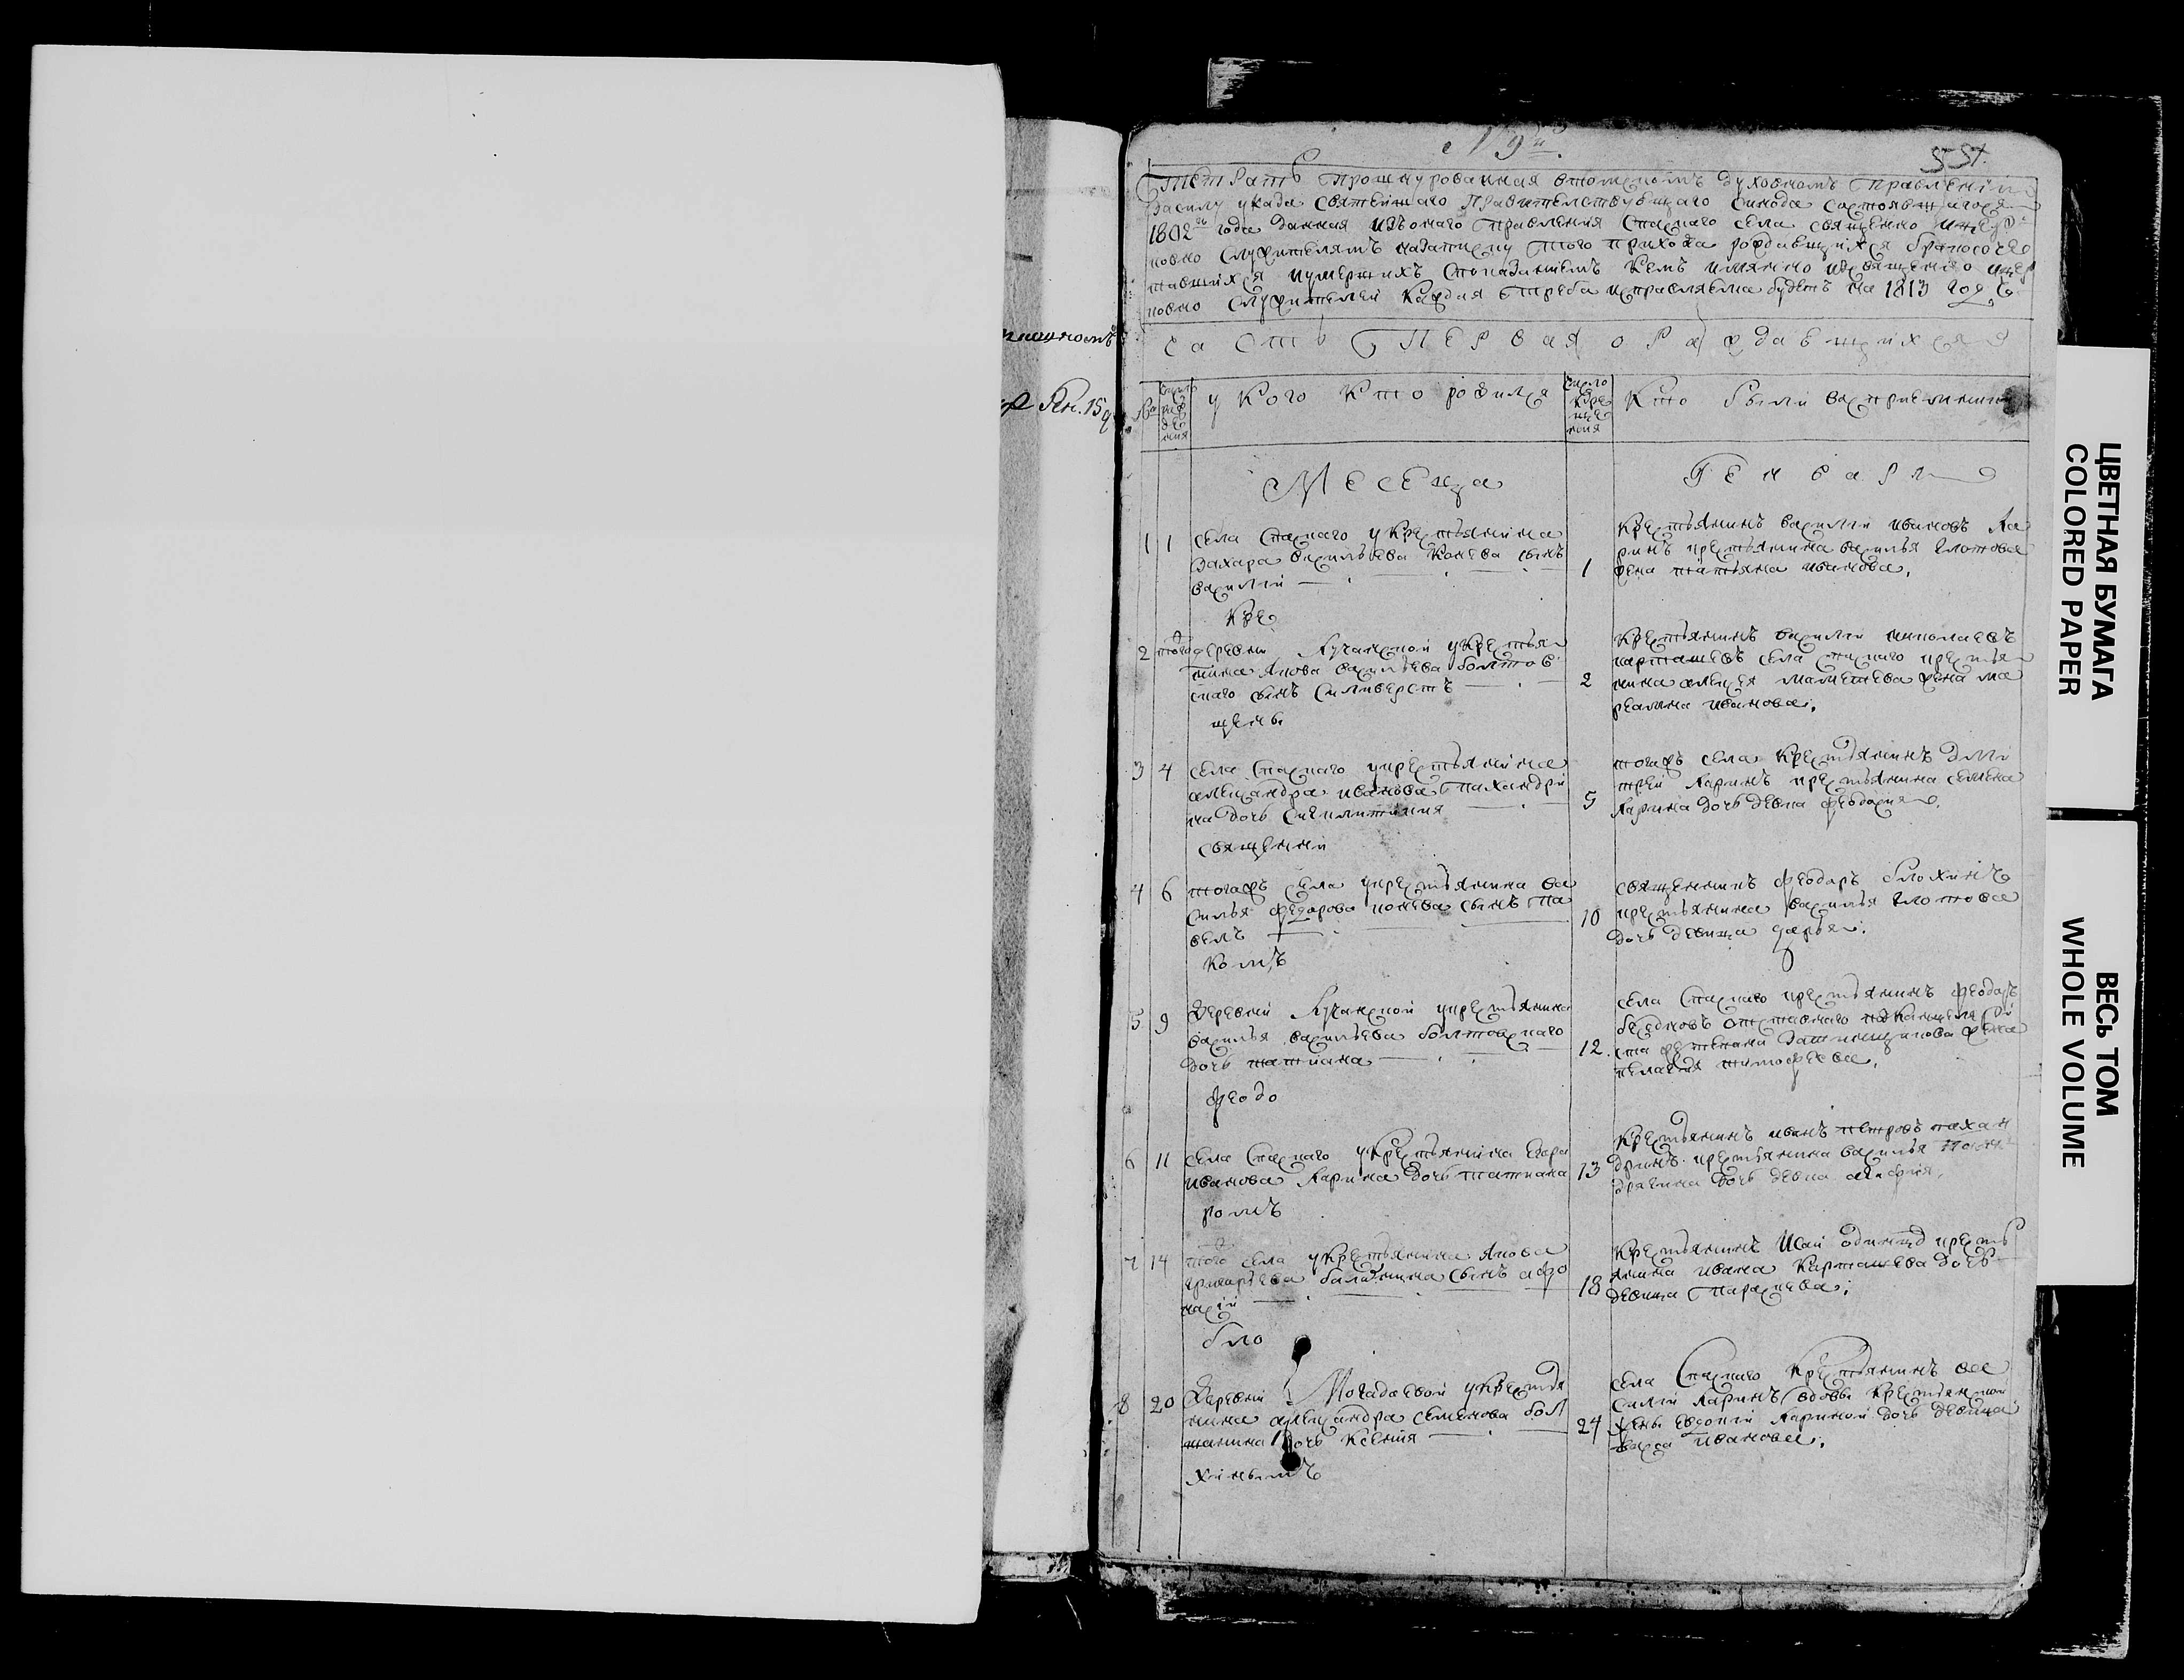 № 9й
551.
Тетрать прошнурованная втомскомъ духовномъ правлении
Василу указа святейшаго Правителствующаго синода состоявшагося
1802го года данная изъ онаго правления Спаскаго села священно и церк
новно служителямъ назаписку того прихода рождавшихся бракосоче
тавшихся иумершихъ спокозаниемъ Кемъ имянно изсвященно ицер
новно служителей каждая треба исправляема будетъ на 1813 годъ
часть Первая о Раждавшихся
№
число рождения
у Кого Кто родился
число крещения
Кто были восприемники
Месеца
Генваря
1
1
села Спаскаго укрестьянина
Захара васильева Конева сынъ
василий
1
Крестьянинъ василий ивановъ Ла
ринъ крестьянина василья глотова
жена татьяна иванова.
Кре
2
того ж
деревни Лучанской укрестья
нина якова васильева болтов
скаго сынъ Силиверстъ
2
Крестьянинъ василий николаевъ
карташевъ села спаскаго крестья
нина алексея мамешева жена ма
ремьяна иванова.
щены
3
4
села Спаскаго укрестьянина
александра иванова Пахандри
на дочь Синклитикия
5
тогожъ села Крестьянинъ Дми
трей Ларинъ крестьянина семена
Ларина дочь девка феодосия
священни
4
6
тогожъ села укрестьянина ва
силья федорова конева сынъ па
велъ
10
священникъ феодоръ блохинъ
крестьянина василья глотова
дочь девица дарья.
комъ
5
9
Деревни Лучанской укрестьянина
василья васильева болтовскаго
дочь татиана
12.
села Спаскаго крестьянинъ феодоръ
отставнаго
жена
пелагея тимофеева.
феодо
6
11
села Спаскаго укрестьянина Егора
иванова Ларина дочь татиана
13
Крестьянинъ иванъ петровъ пахан
дринъ крестьянина василья
дочь девка
ромъ
7
14
того ж села укрестьянина якова
григорьева сынъ афо
насий
18
Крестьянинъ Исай крестья
янина ивана Карташева дочь
девица Параскева.
бло
8
20
Деревни укрестья
нина александра семенова бол
танина дочь Ксения
24
села Спаскаго Крестьянинъ ва
силий Ларинъ вдовы крестьянской
жены Евдокии Лариной дочь девица
васса иванова.
хинымъ
ЦВЕТНАЯ БУМАГА
COLORED PAPER
ВЕСЬ ТОМ
WHOLE VOLUME